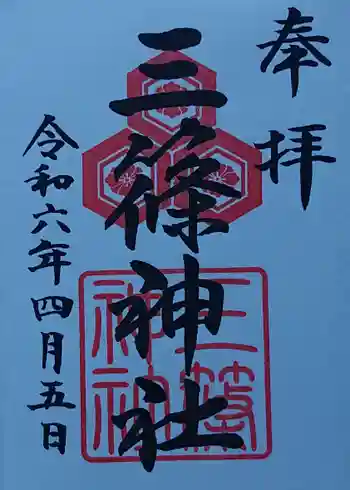 奉拝
三篠神社
令和六年四月五日
三篠神社